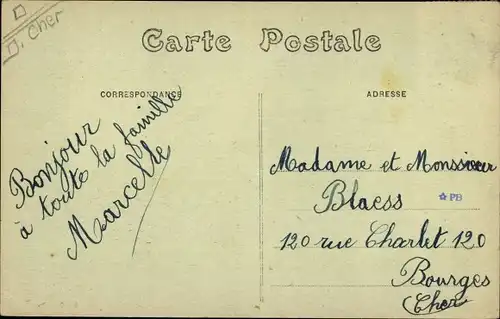 D. Cher
Carte Postale
CORRESPONDANCE
ADRESSE
Bonjour
à toute la famille
Marcelle
Madame et Monssieur
Blaess
PB
120 rue Charlet 120
Bourges
(Cher